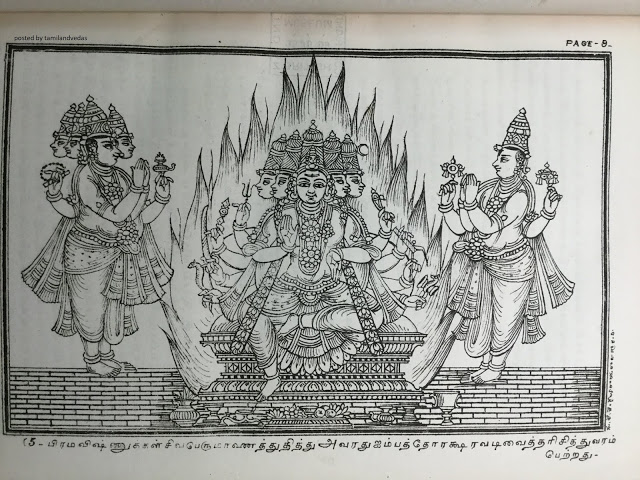 posted by tamilandvedas
PAGE-8-
(5- பிரமவிஷ்ணுக்கள் சிவபெருமாவணத்துதித்து அவரது ஐம்பத்தோரக்ஷரவடிவைத்தரிசித்துவரம்
பெற்றது-